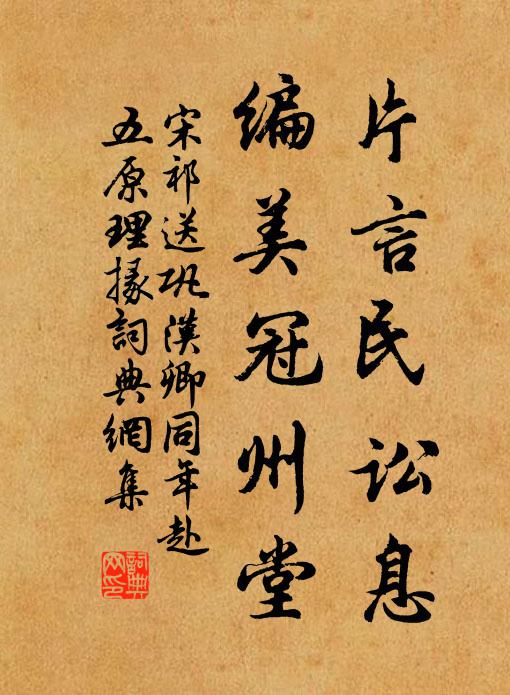 片言民讼息
编美冠州堂
宋祁送巩汉卿同年赴
五原理掾詞典網集
詞典
网印